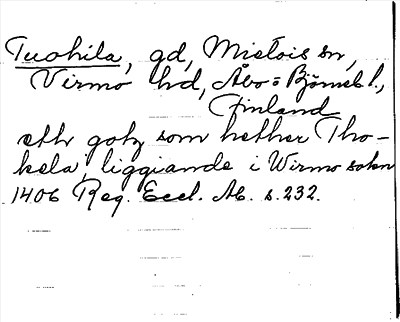 Tuohila, gd, Mietois sn,
Virmo hd, Åbo = Björneb l.,
Finland
ett gotz som hether Tho-
kela, liggiande i Wirmo sokn
1406 Reg. Eccl. Ab. s. 232.